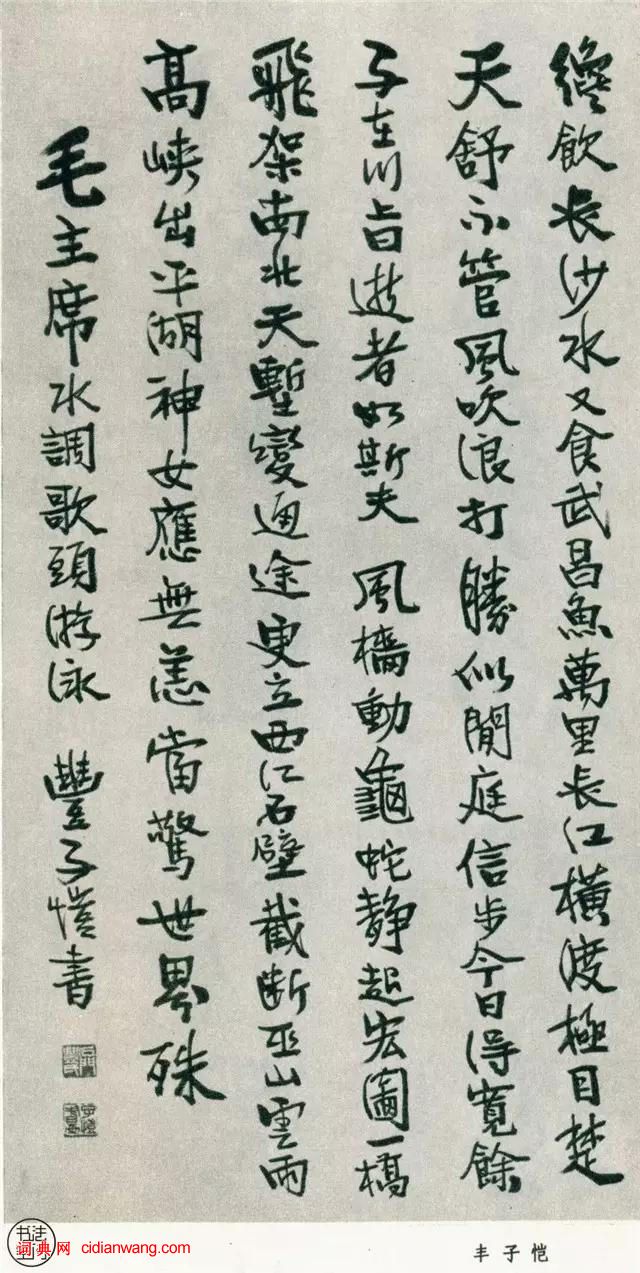 纔飲長沙水又食武昌魚萬里長江橫渡極目楚
天舒不管風吹浪打勝似閒庭信步今日得寬餘
子在川上曰逝者如斯夫 風檣動龜蛇静起宏圖一橋
飛架南北天塹變通途更立西江石壁截斷巫山雲雨
高峽出平湖神女應無恙當驚世界殊
毛主席水調歌頭游泳 豐子愷書
书法
词典网 cidianwang.com
丰子恺